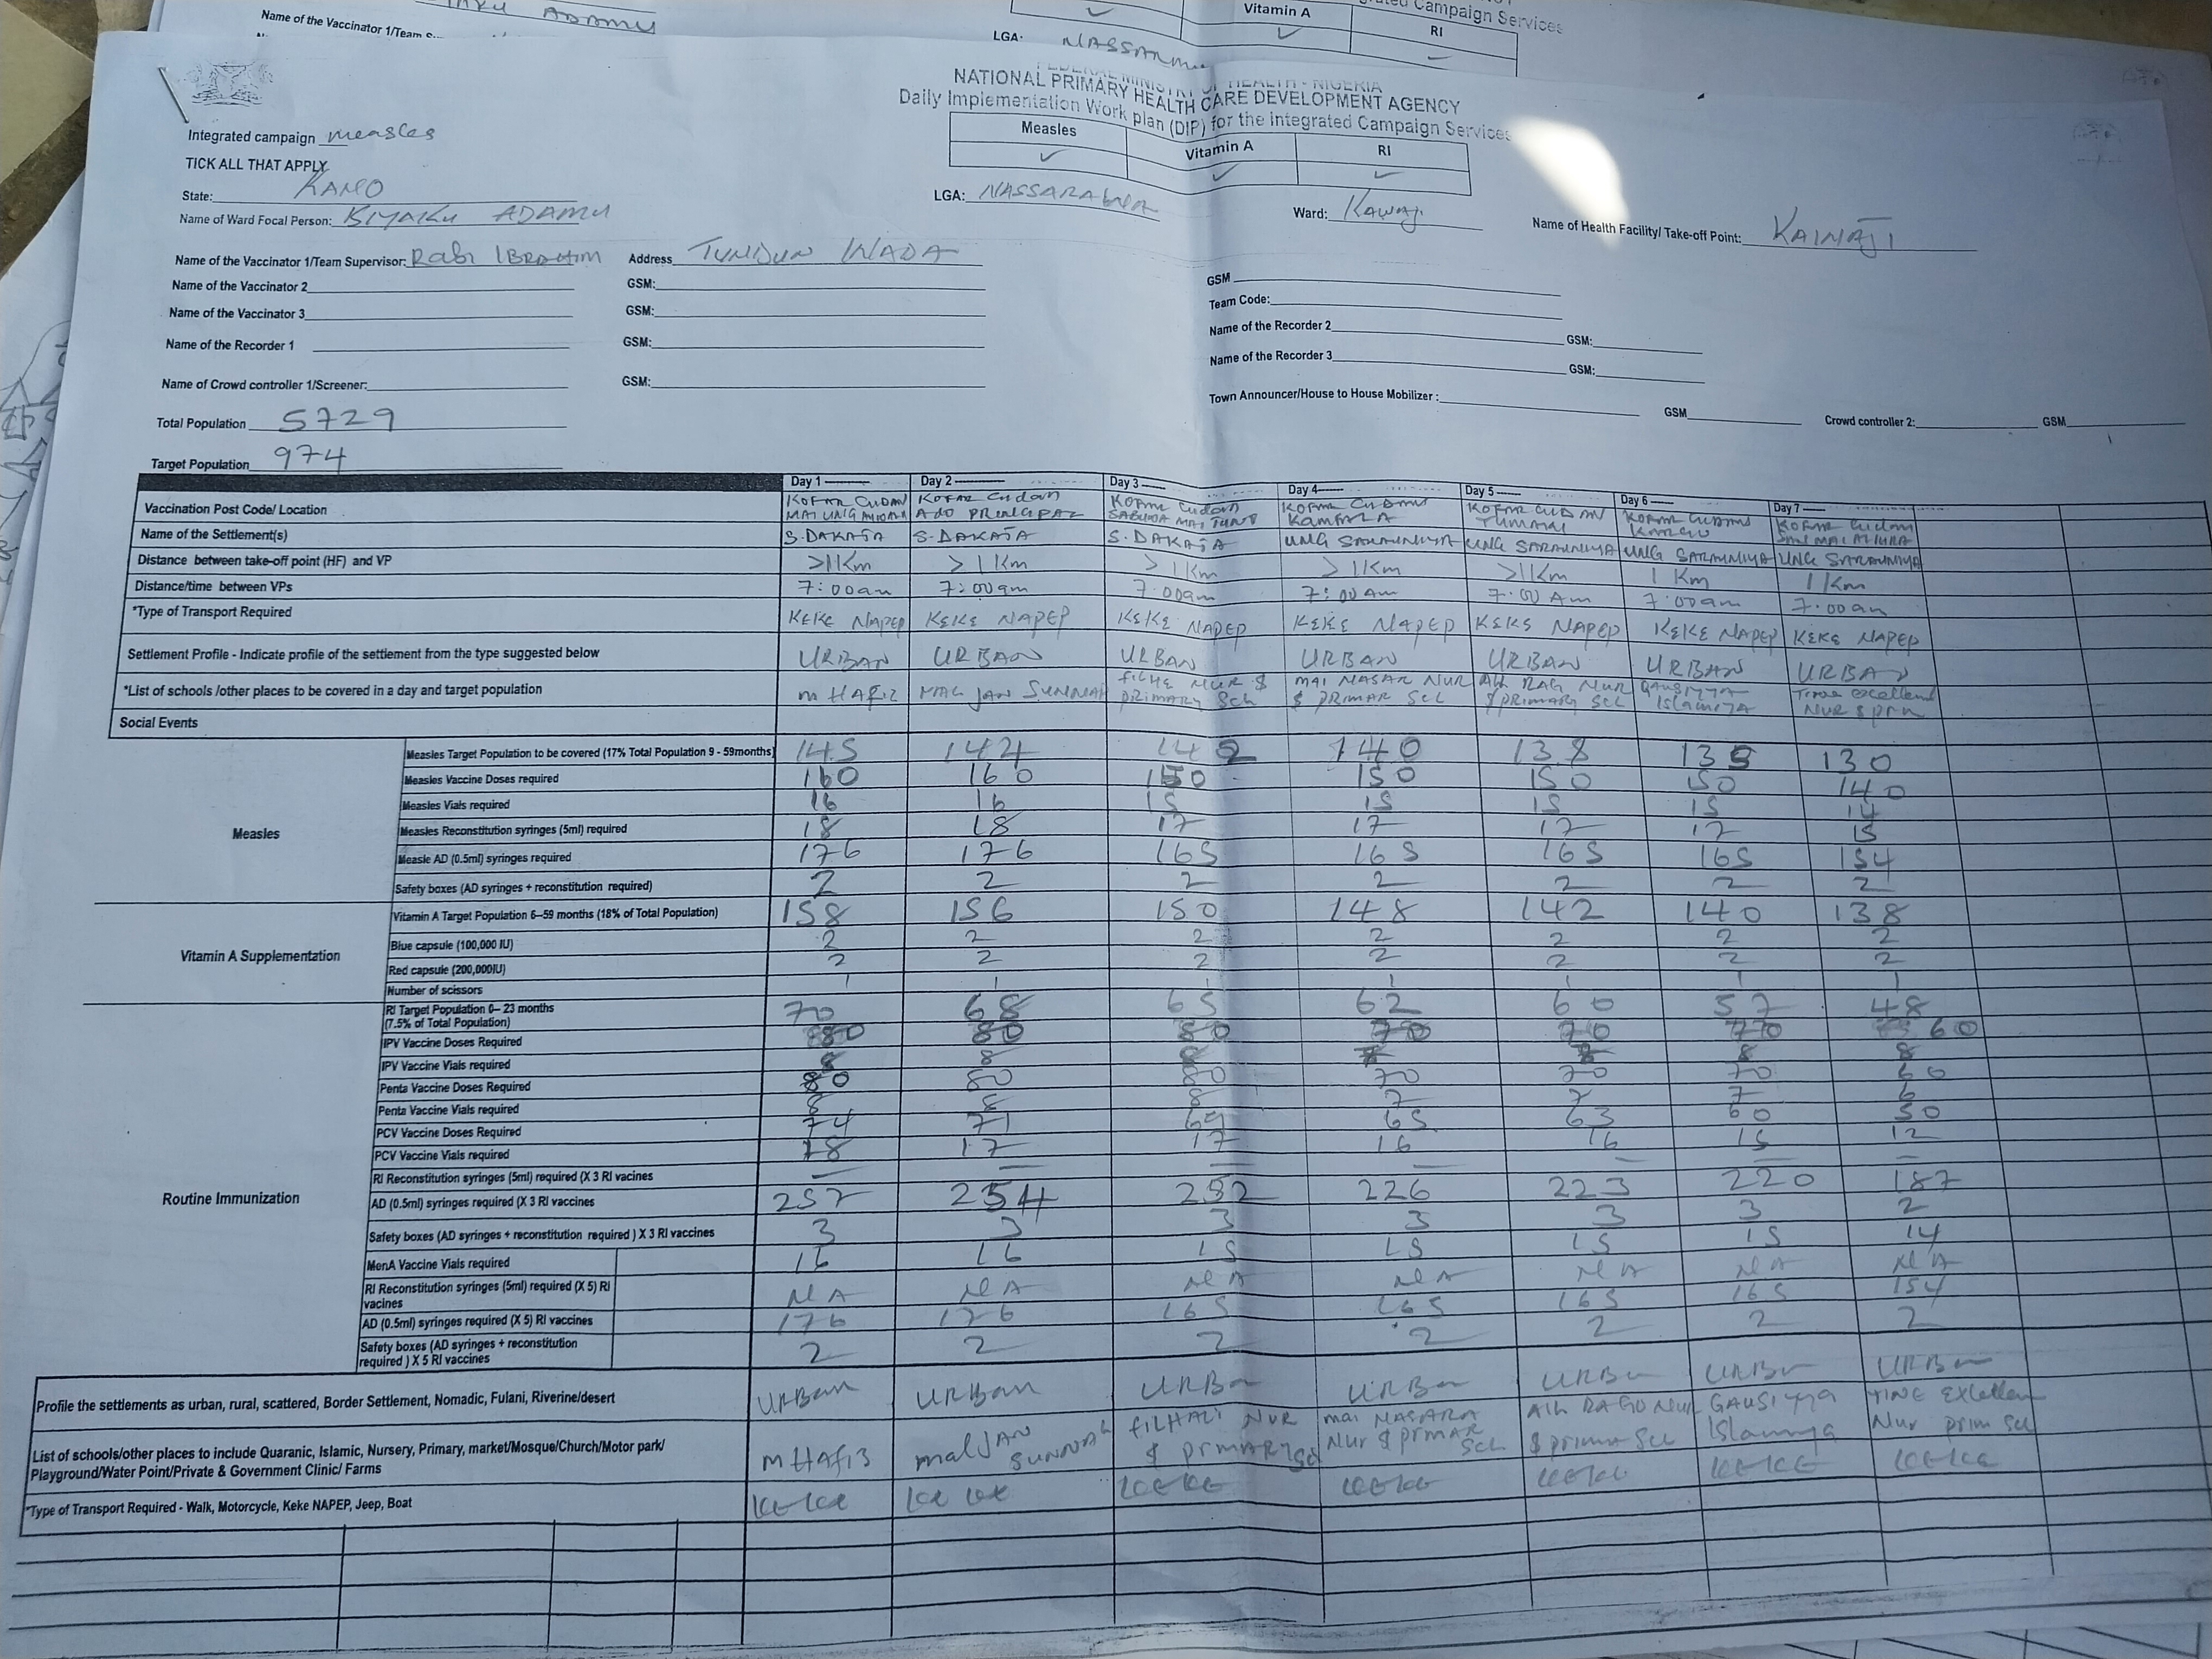 Name of the Vaccinator 1/Team S
ADAMU
Vitamin A
RI
Campaign Services
LGA: NASSARAWA
FEDERAL MINISTRY OF HEALTH - NIGERIA
NATIONAL PRIMARY HEALTH CARE DEVELOPMENT AGENCY
Daily Implementation Work plan (DIP) for the Integrated Campaign Services
Integrated campaign measles
Measles Vitamin A RI
✓ ✓ ✓
TICK ALL THAT APPLY
State: KANO LGA: NASSARAWA Ward: Kawaji Name of Health Facility/ Take-off Point: KAINAJI
Name of Ward Focal Person: BIYAKU ADAMU
Name of the Vaccinator 1/Team Supervisor: Rabi IBRAHIM Address TUNDUN WADA GSM
Name of the Vaccinator 2 GSM: Team Code:
Name of the Vaccinator 3 GSM: Name of the Recorder 2 GSM:
Name of the Recorder 1 GSM: Name of the Recorder 3 GSM:
Name of Crowd controller 1/Screener: GSM: Town Announcer/House to House Mobilizer : GSM Crowd controller 2: GSM
Total Population 5729
Target Population 974
Day 1 Day 2 Day 3 Day 4 Day 5 Day 6 Day 7
Vaccination Post Code/ Location KOFAR GUDAN MAI UNG KOFAR Gudan ADO PRINCIPAL KOFAR Gudan MAI KOFAR GUDAN KOFAR GUDAN KOFAR GUDAN KOFAR Gudan
Name of the Settlement(s) S.DAKATA S.DAKATA S.DAKATA UNG SARAUNIYA UNG SARAUNIYA UNG SARAUNIYA UNG SARAUNIYA
Distance between take-off point (HF) and VP >1Km >1Km >1Km >1Km >1Km 1 Km 1 Km
Distance/time between VPs 7:00am 7:00am 7:00am 7:00 Am 7:00 Am 7:00am 7:00am
*Type of Transport Required KEKE NAPEP KEKE NAPEP KEKE NAPEP KEKE NAPEP KEKE NAPEP KEKE NAPEP KEKE NAPEP
Settlement Profile - Indicate profile of the settlement from the type suggested below URBAN URBAN URBAN URBAN URBAN URBAN URBAN
*List of schools /other places to be covered in a day and target population m HAFIZ MAL JAN SUNNAH NUR $ primary Sch MAI NASAR NUR $ PRIMAR Scl NUR $ primary Scl Islamiya excellent NUR $ prm
Social Events
Measles
Measles Target Population to be covered (17% Total Population 9 - 59months) 145 144 142 140 138 135 130
Measles Vaccine Doses required 160 160 150 150 150 150 140
Measles Vials required 16 16 15 15 15 15 14
Measles Reconstitution syringes (5ml) required 18 18 17 17 17 17 15
Measle AD (0.5ml) syringes required 176 176 165 165 165 165 154
Safety boxes (AD syringes + reconstitution required) 2 2 2 2 2 2 2
Vitamin A Supplementation
Vitamin A Target Population 6–59 months (18% of Total Population) 158 156 150 148 142 140 138
Blue capsule (100,000 IU) 2 2 2 2 2 2 2
Red capsule (200,000IU) 2 2 2 2 2 2 2
Number of scissors 1 1 1 1 1 1 1
Routine Immunization
RI Target Population 0– 23 months (7.5% of Total Population) 70 68 65 62 60 57 48
IPV Vaccine Doses Required 80 80 80 70 70 70 60
IPV Vaccine Vials required 8 8 8 8 8
Penta Vaccine Doses Required 80 80 80 70 70 70 60
Penta Vaccine Vials required 8 8 8 7 7 7 6
PCV Vaccine Doses Required 74 71 69 65 63 60 50
PCV Vaccine Vials required 18 17 17 16 16 15 12
RI Reconstitution syringes (5ml) required (X 3 RI vacines — — — — — — —
AD (0.5ml) syringes required (X 3 RI vaccines 257 254 252 226 223 220 187
Safety boxes (AD syringes + reconstitution required ) X 3 RI vaccines 3 3 3 3 3 3 2
MenA Vaccine Vials required 16 16 15 15 15 15 14
RI Reconstitution syringes (5ml) required (X 5) RI vacines N A N A N A N A N A N A N A
AD (0.5ml) syringes required (X 5) RI vaccines 176 176 165 165 165 165 154
Safety boxes (AD syringes + reconstitution required ) X 5 RI vaccines 2 2 2 2 2 2 2
Profile the settlements as urban, rural, scattered, Border Settlement, Nomadic, Fulani, Riverine/desert URBan URBan URBan URBan URBan URBan URBan
List of schools/other places to include Quaranic, Islamic, Nursery, Primary, market/Mosque/Church/Motor park/ Playground/Water Point/Private & Government Clinic/ Farms m HAFIZ mal JAN SUNNAH FILHALI NUR $ PRMARY Scl mai NASARA Nur $ prmar Scl Alh RAGO Nur $ primar Scl GAUSIYYA Islamiya TIME Excellen Nur prim Scl
*Type of Transport Required - Walk, Motorcycle, Keke NAPEP, Jeep, Boat KEKE KEKE KEKE KEKE KEKE KEKE KEKE